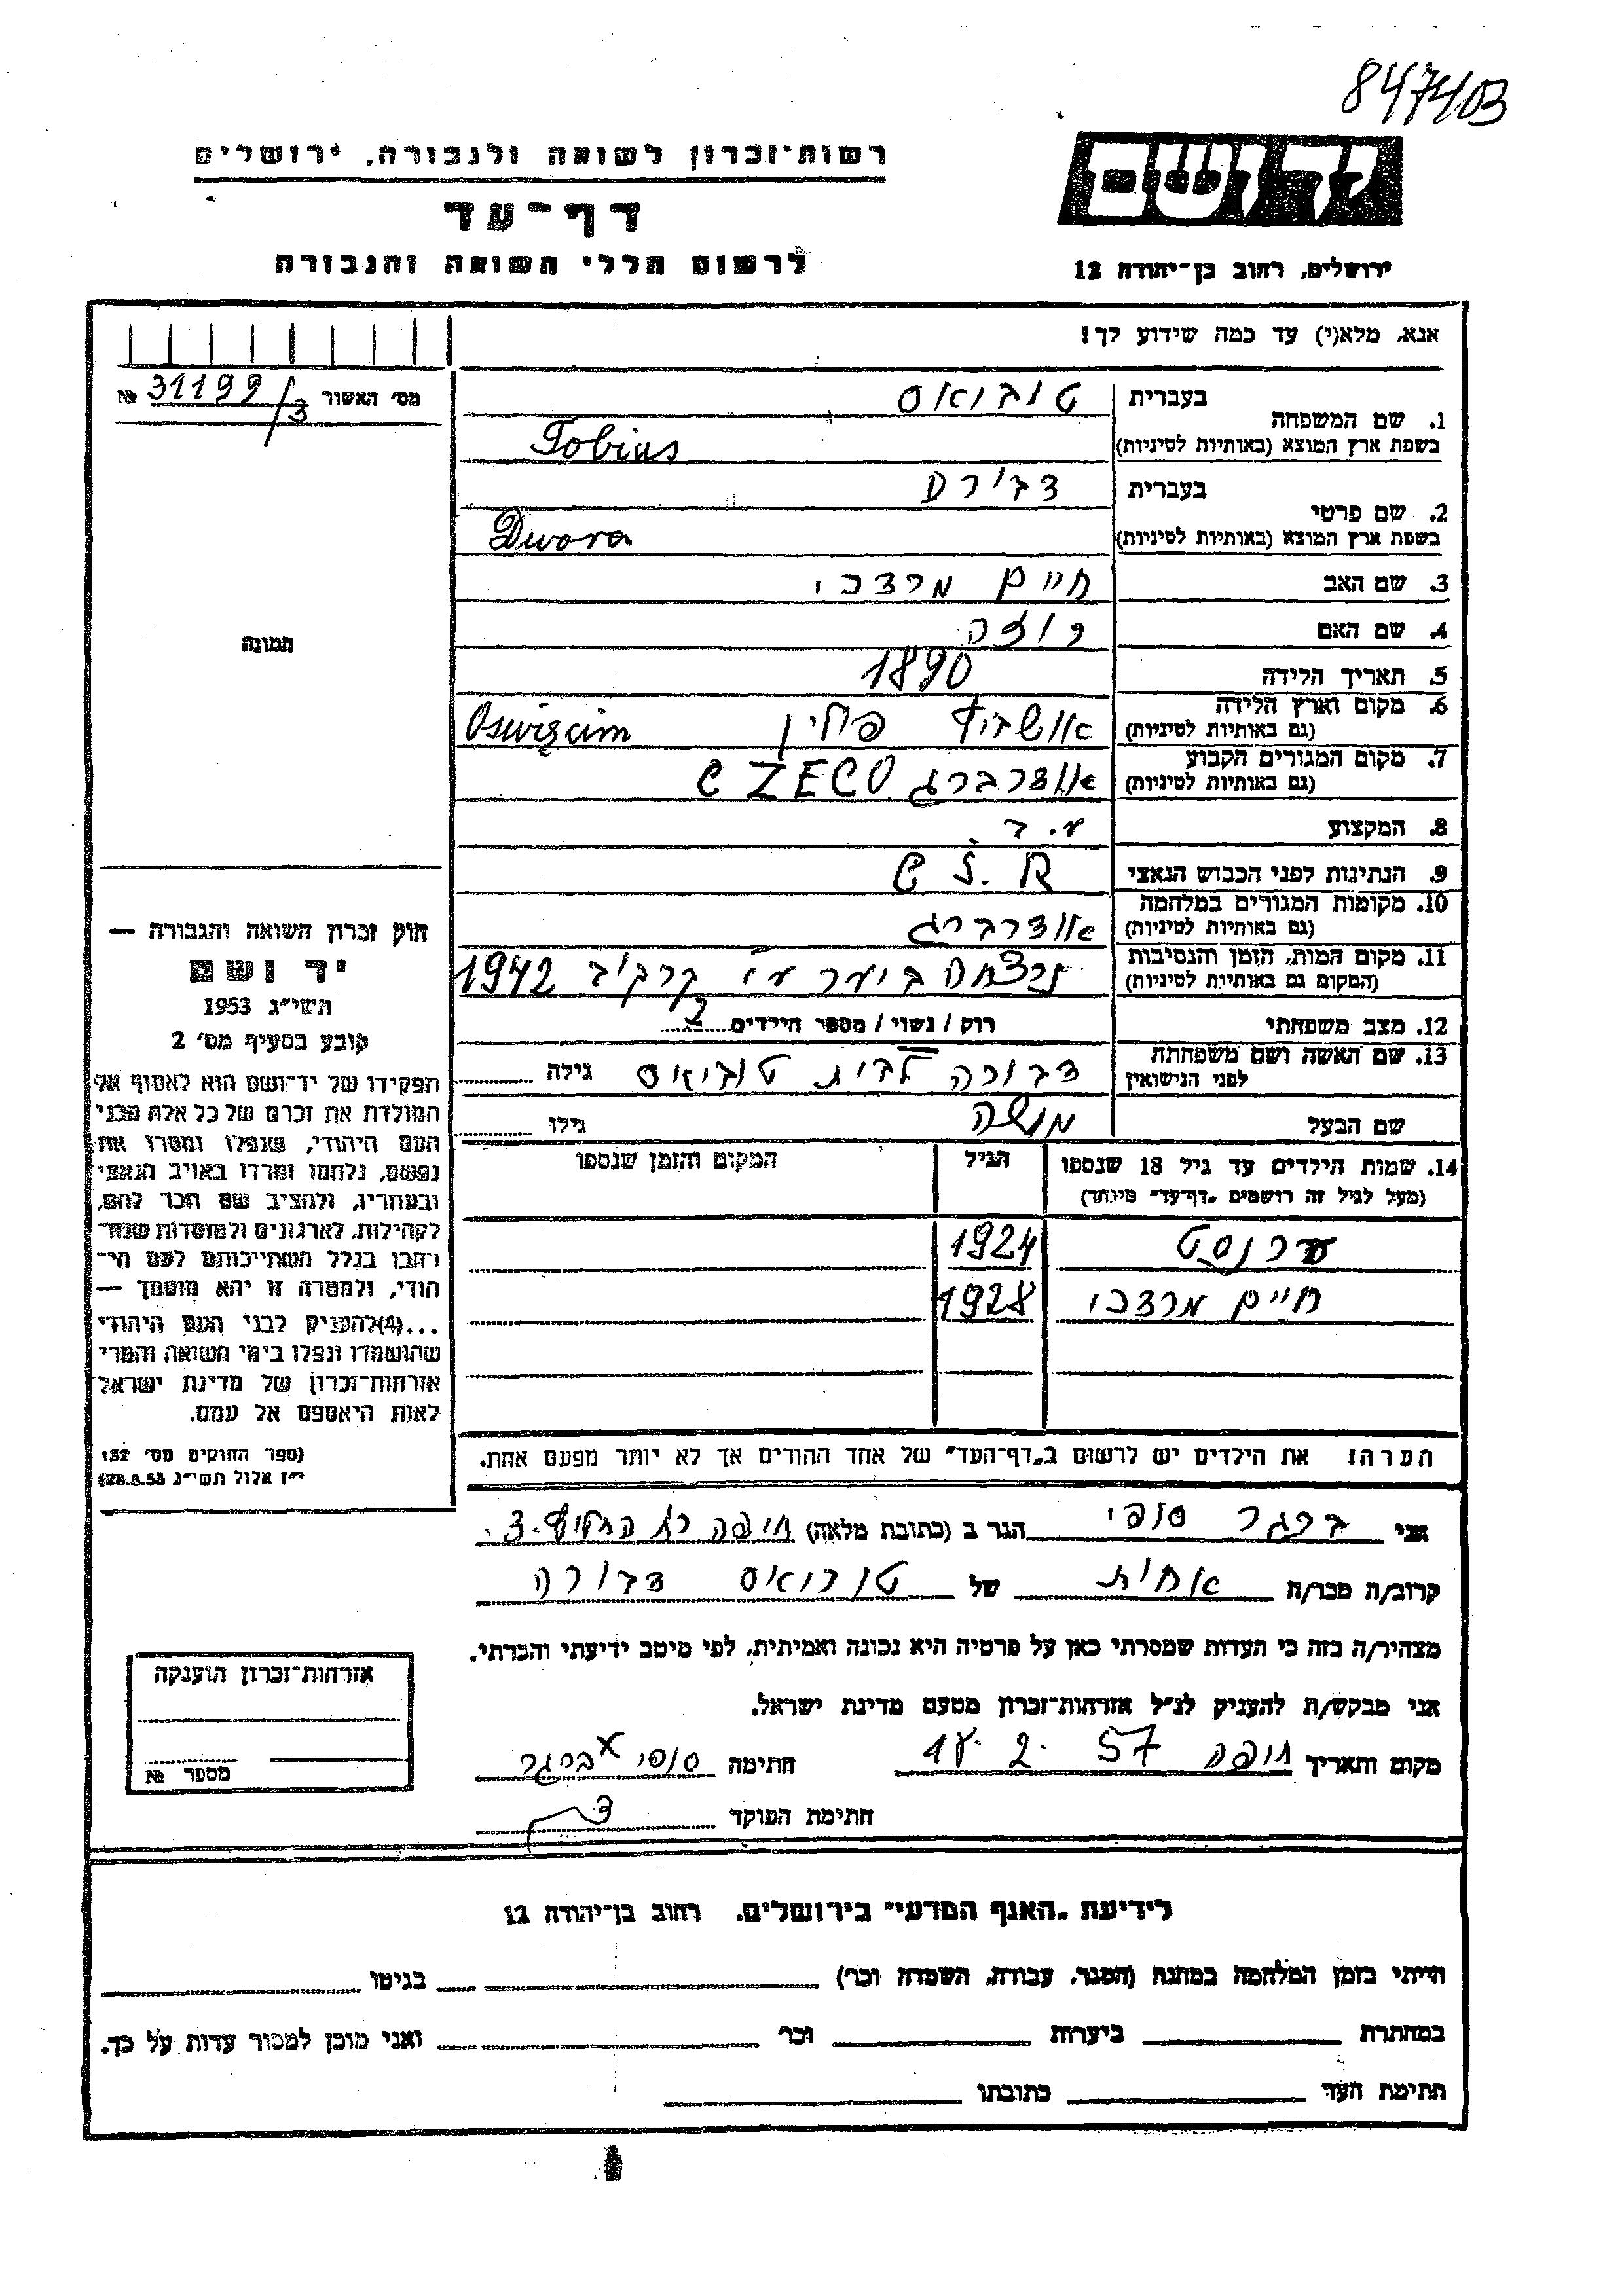 847403
רשות־זכרון לשואה ולגבורה, ירושלים
ידושם
דף־עד
לרשום חללי השואה והגבורה
ירושלים, רחוב בן־יהודה 12
אנא, מלא(י) עד כמה שידוע לך!
מס׳ האשור 31199/3 №
1. שם המשפחה
בעברית טוביאס
בשפת ארץ המוצא (באותיות לטיניות) Tobias
2. שם פרטי
בעברית דבורע
בשפת ארץ המוצא (באותיות לטיניות) Dwora
3. שם האב חיים מרדכי
4. שם האם רוזה
5. תאריך הלידה 1890
6. מקום וארץ הלידה פולין Oswięcim
(גם באותיות לטיניות)
7. מקום המגורים הקבוע אודרברג CZECO
(גם באותיות לטיניות)
8. המקצוע
9. הנתינות לפני הכבוש הנאצי Č.S.R
10. מקומות המגורים במלחמה אודרברג
(גם באותיות לטיניות)
11. מקום המות, הזמן והנסיבות נרצחה ביער ע״י קרקוב 1942
(המקום גם באותיות לטיניות)
12. מצב משפחתי רוק / נשוי / מספר הילדים 2
13. שם האשה ושם משפחתה דבורה לבית טוביאס גילה
לפני הנישואין
שם הבעל משה גילו
14. שמות הילדים עד גיל 18 שנספו הגיל המקום והזמן שנספו
(מעל לגיל זה רושמים „דף־עד״ מיוחד)
ערנסט 1924
חיים מרדכי 1928
הערה: את הילדים יש לרשום ב„דף־העד״ של אחד ההורים אך לא יותר מפעם אחת.
תמונה
חוק זכרון השואה והגבורה —
יד ושם
תשי״ג 1953
קובע בסעיף מס׳ 2
תפקידו של יד־ושם הוא לאסוף אל
המולדת את זכרם של כל אלה מבני
העם היהודי, שנפלו ומסרו את
נפשם, נלחמו ומרדו באויב הנאצי
ובעוזריו, ולהציב שם וזכר להם,
לקהילות, לארגונים ולמוסדות שנח־
רבו בגלל השתייכותם לעם הי־
הודי, ולמטרה זו יהא מוסמך —
...(4)להעניק לבני העם היהודי
שהושמדו ונפלו בימי השואה והמרי
אזרחות־זכרון של מדינת ישראל
לאות היאספם אל עמם.
(ספר החוקים מס׳ 132
י״ז אלול תשי״ג 28.8.53)
אני ברגר סופי הגר ב (כתובת מלאה) חיפה רח 3.
קרוב/ה מכר/ה אחות של טוביאס דבורה
מצהיר/ה בזה כי העדות שמסרתי כאן על פרטיה היא נכונה ואמיתית, לפי מיטב ידיעתי והכרתי.
אני מבקש/ת להעניק לנ״ל אזרחות־זכרון מטעם מדינת ישראל.
מקום ותאריך חיפה 18. 2. 57 חתימה סופי ברגר
חתימת הפוקד
אזרחות־זכרון הוענקה
מספר №
לידיעת „האגף המדעי״ בירושלים, רחוב בן־יהודה 12
הייתי בזמן המלחמה במחנה (הסגר, עבודה, השמדה וכר׳) בגיטו
במחתרת ביערות וכר׳ ואני מוכן למסור עדות על כך.
חתימת העד כתובתו